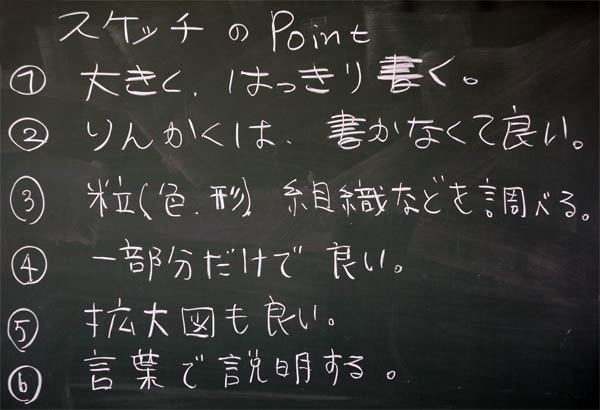 スケッチのPoint
① 大きく、はっきり書く。
② りんかくは、書かなくて良い。
③ 粒(色、形) 組織などを調べる。
④ 一部分だけで良い。
⑤ 拡大図も良い。
⑥ 言葉で説明する。